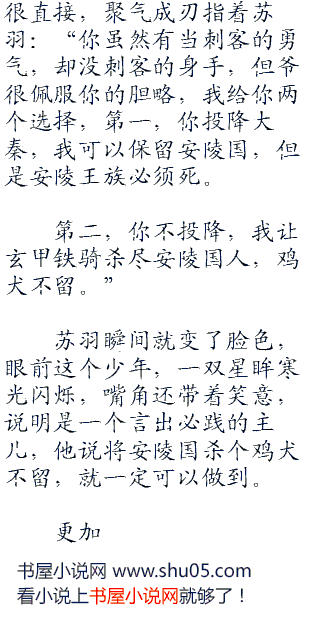 很直接，聚气成刃指着苏
羽：“你虽然有当刺客的勇
气，却没刺客的身手，但爷
很佩服你的胆略，我给你两
个选择，第一，你投降大
秦，我可以保留安陵国，但
是安陵王族必须死。
第二，你不投降，我让
玄甲铁骑杀尽安陵国人，鸡
犬不留。”
苏羽瞬间就变了脸色，
眼前这个少年，一双星眸寒
光闪烁，嘴角还带着笑意，
说明是一个言出必践的主
儿，他说将安陵国杀个鸡犬
不留，就一定可以做到。
更加
书屋小说网 www.shu05.com
看小说上书屋小说网就够了！